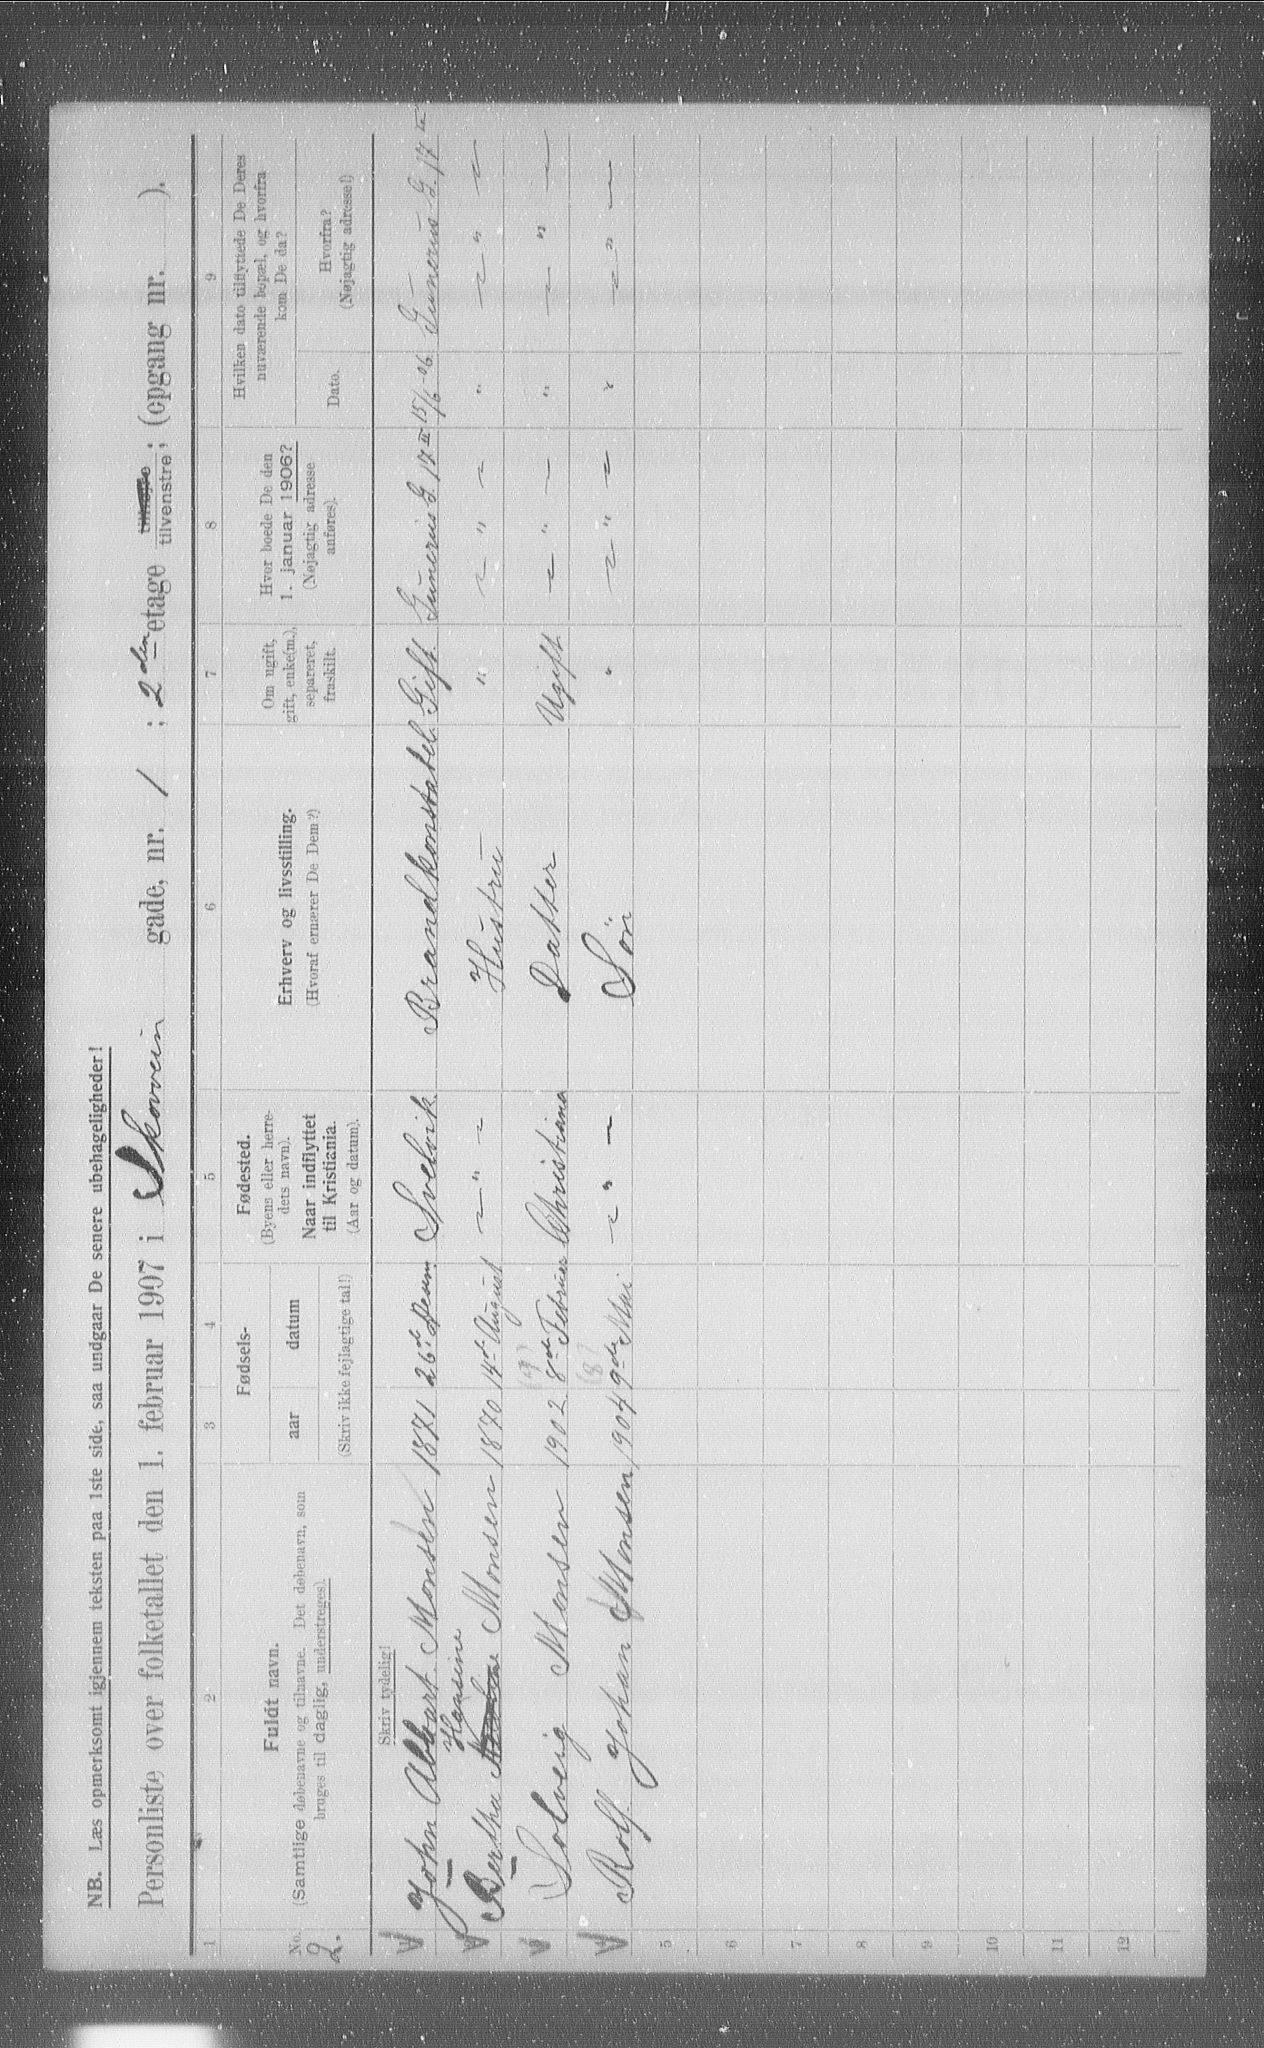 NB. Læs opmerksomt igjennem teksten paa 1ste side, saa undgaar De senere ubehageligheder!
Personliste over folketallet den 1. februar 1907 i Skovvein gade, nr. 1 ; 2 den etage tilvenstre; (opgang nr. ).
1 2 3 4 5 6 7 8 9
No.
2.
Fuldt navn.
(Samtlige døbenavne og tilnavne. Det døbenavn, som
bruges til daglig, understreges).
Skriv tydelig!
Fødsels-
aar datum
(Skriv ikke fejlagtige tal!)
Fødested.
(Byens eller herre-
dets navn).
Naar indflyttet
til Kristiania.
(Aar og datum).
Erhverv og livsstilling.
(Hvoraf ernærer De Dem?)
Om ugift,
gift, enke(m.),
separeret,
fraskilt.
Hvor boede De den
1. januar 1906?
(Nøjagtig adresse
anføres).
Hvilken dato tilflyttede De Deres
nuværende bopæl, og hvorfra
kom De da?
Dato.
Hvorfra?
(Nøjagtig adresse!)
John Monsen 1871 26de Svelvik Brandkonstabel. Gift. Gunerius G. 17 III 15/6-06. Gunerius G. 17 III
Hansine
Bertha Monsen 1870 14de August — " — Hustru " — " — " — " —
(9)
Solveig Monsen 1902 8de Februar Christiania Datter Ugift — " — " — " —
(8)
Rolf Johan Monsen 1904 9de Mai — " — Søn " — " — " — " —
5
6
7
8
9
10
11
12